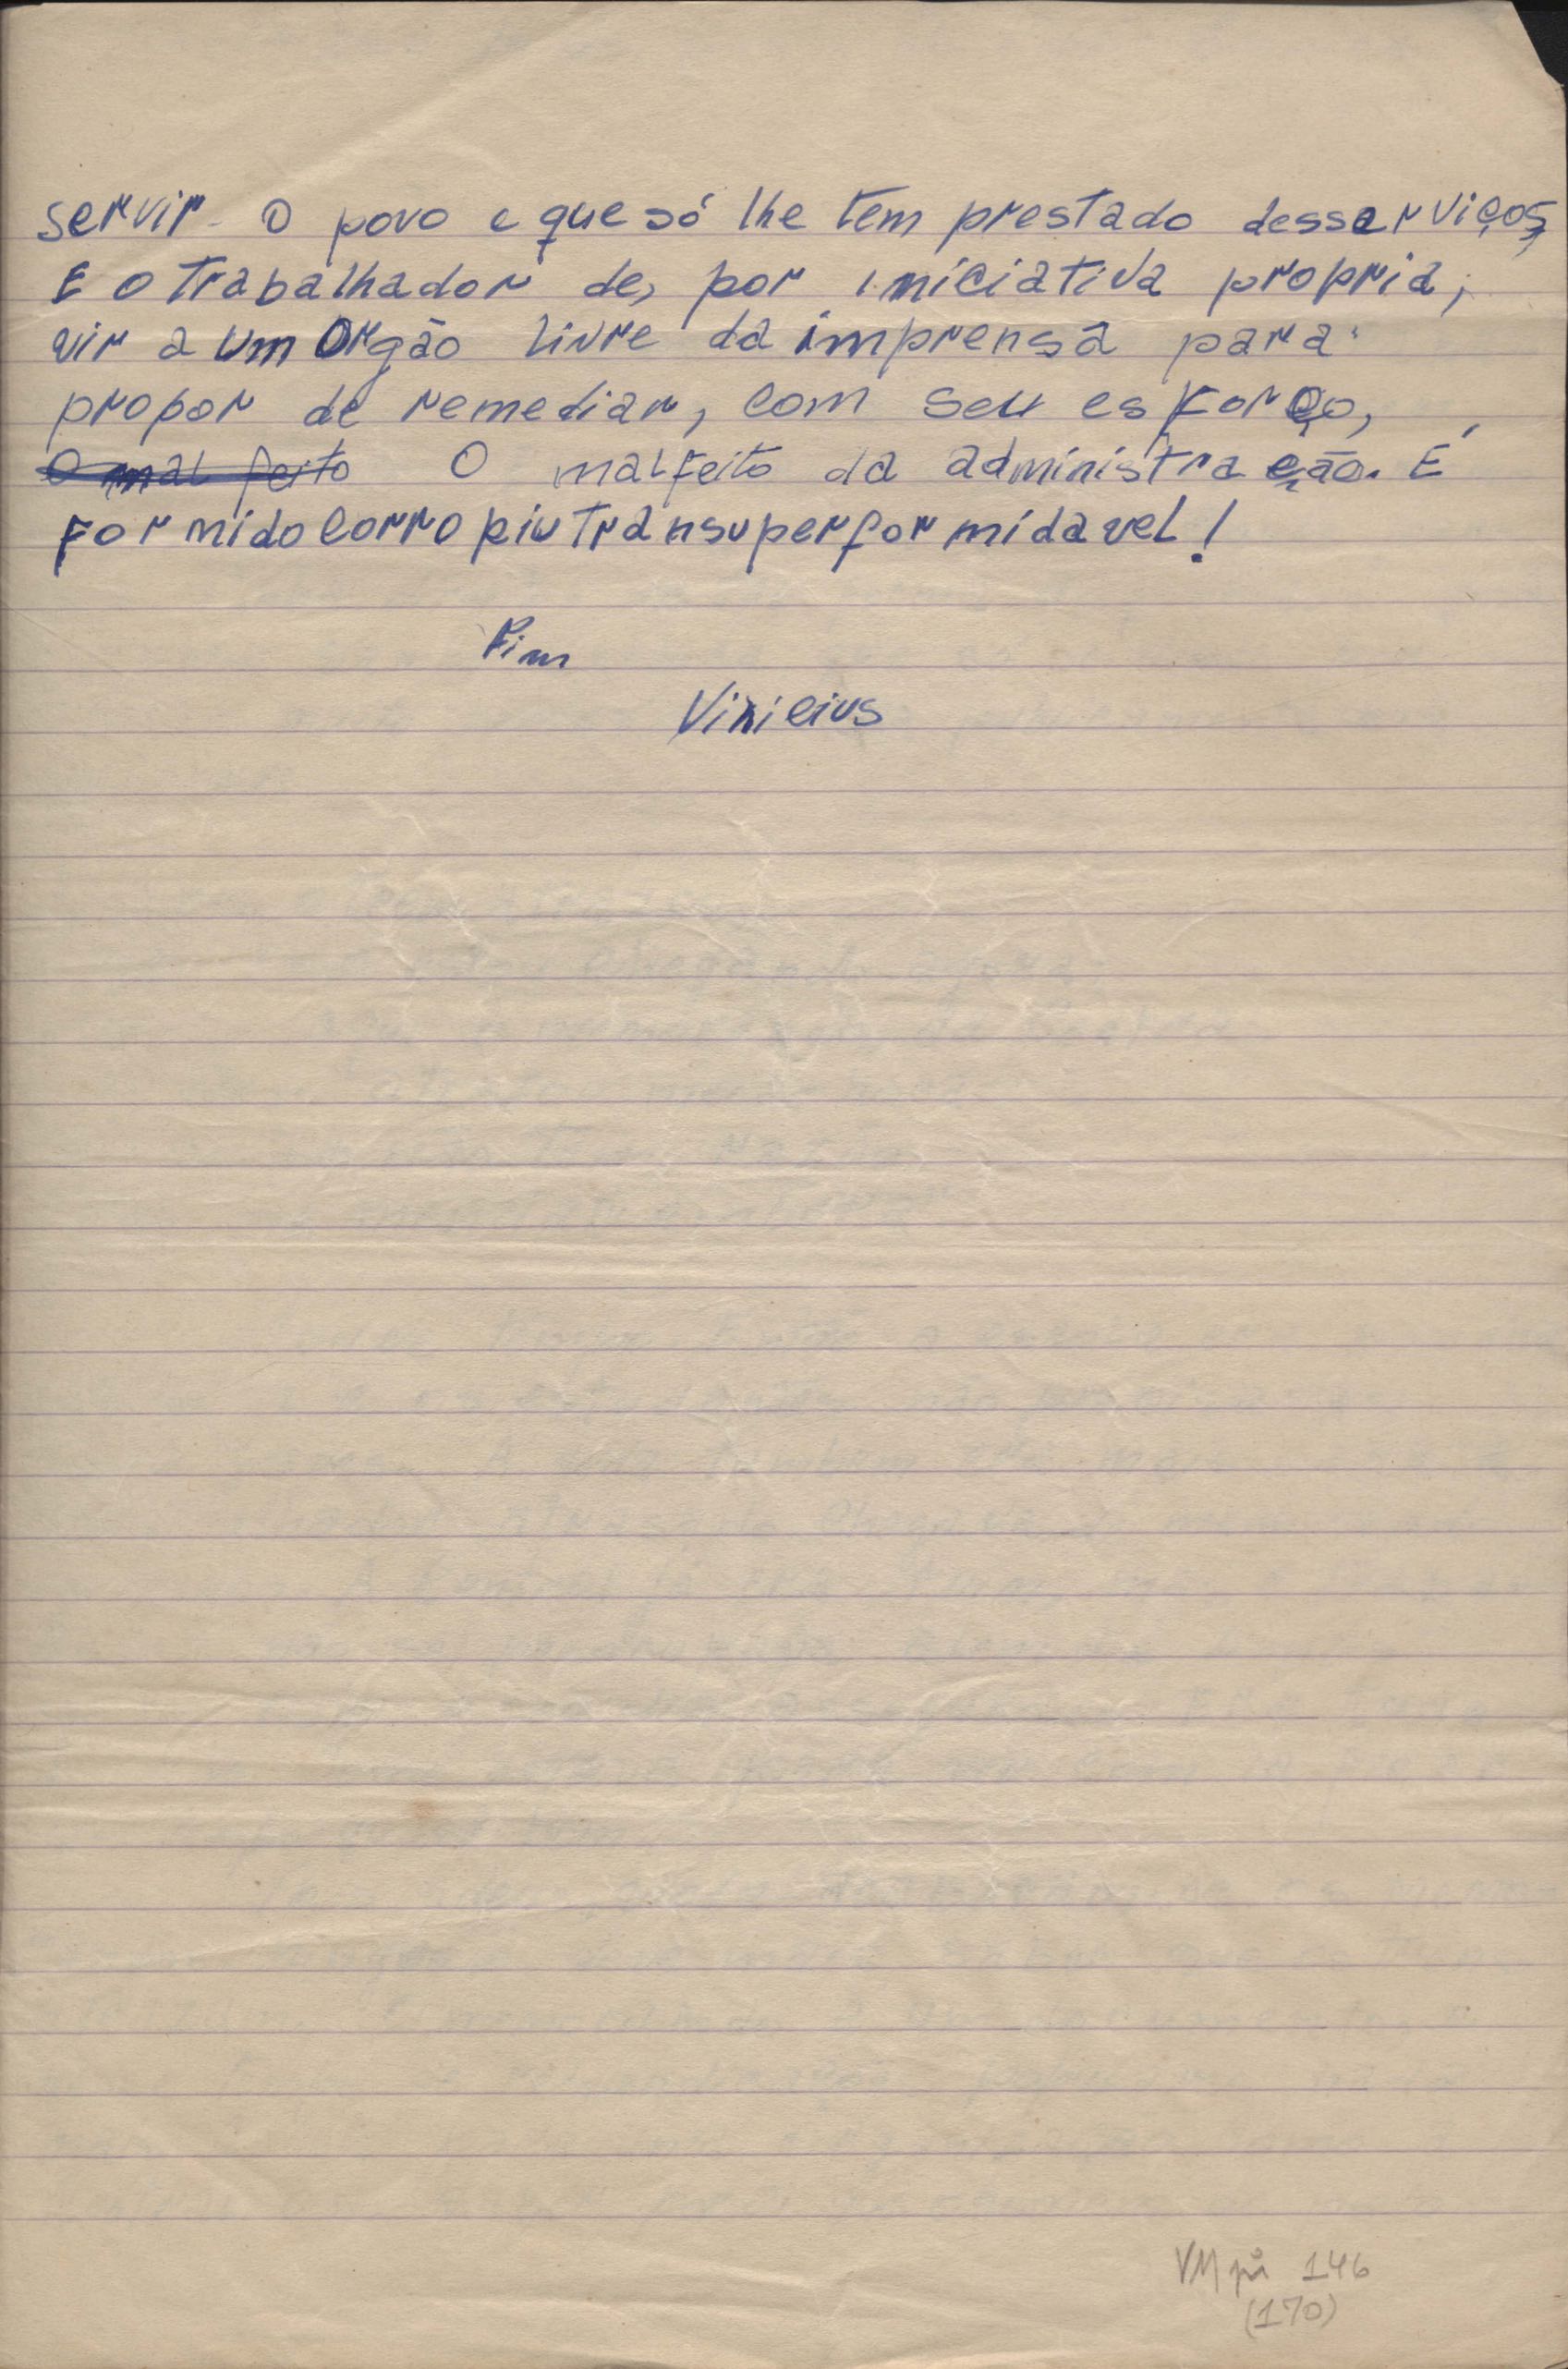 servir o povo e que só lhe tem prestado desserviços
E o Trabalhador de, por iniciativa propria,
vir a um Orgão livre da imprensa para
propor de remediar, com seu esforço,
O mal feito O malfeito da administração. É
Formidocorropiutransuperformidavel!
Fim
Vinicius
VM pi 146
(170)